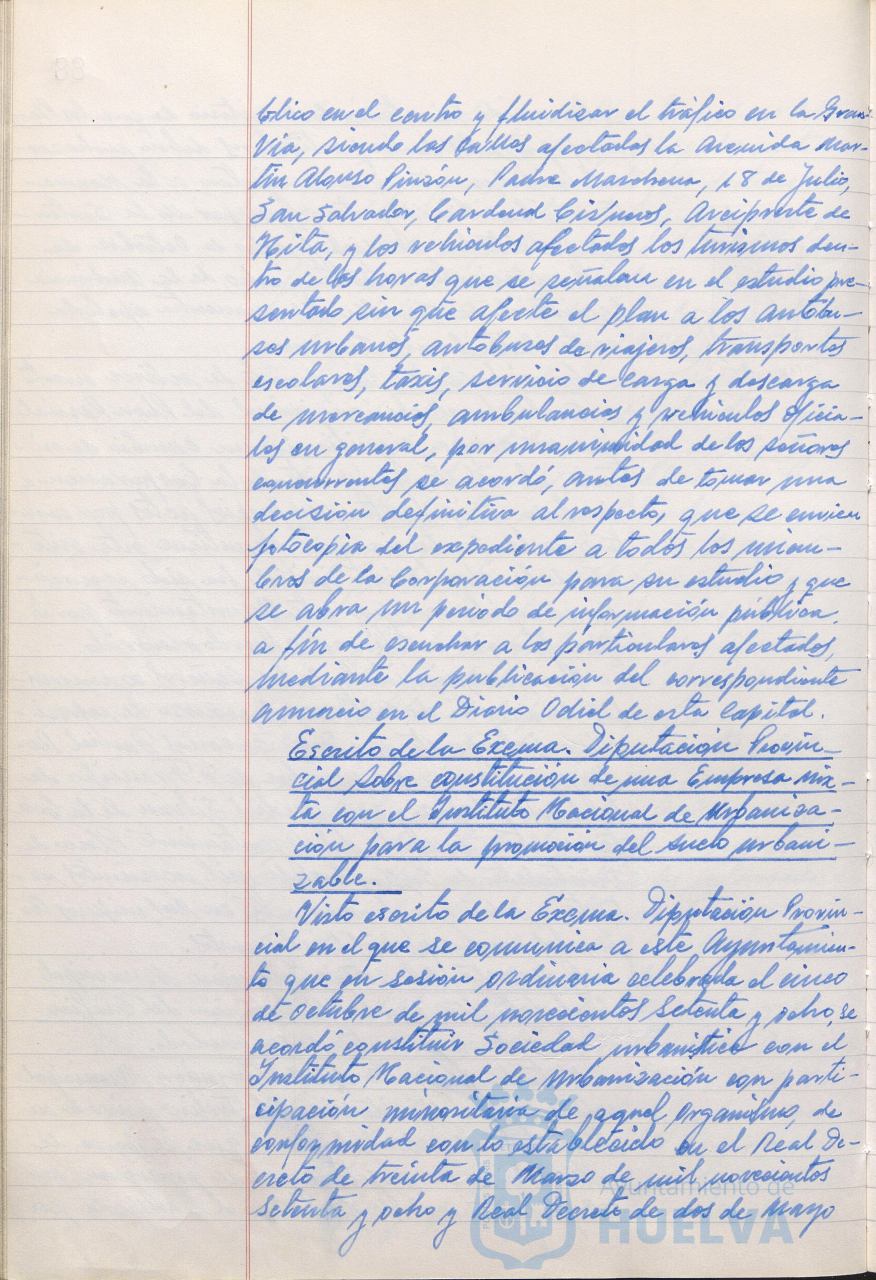 blico en el centro y fluidizar el tráfico en la Gran
Vía, siendo las Calles afectadas la Avenida Mar-
tín Alonso Pinzón, Padre Marchena, 18 de Julio,
San Salvador, Cardenal Cisneros, Arcipreste de
Hita, y los vehículos afectados los turismos den-
tro de las horas que se señalan en el estudio pre-
sentado sin que afecte el plan a los autobu-
ses urbanos, autobuses de viajeros, transportes
escolares, taxis, servicio de carga y descarga
de mercancías, ambulancias y vehículos oficia-
les en general, por unanimidad de los señores
concurrentes se acordó, antes de tomar una
decisión definitiva al respecto, que se envien
fotocopia del expediente a todos los miem-
bros de la Corporación para su estudio y que
se abra un periodo de información pública,
a fín de escuchar a los particulares afectados,
mediante la publicación del correspondiente
anuncio en el Diario Odiel de esta Capital.
Escrito de la Excma. Diputación Provin-
cial sobre constitución de una Empresa mix-
ta con el Instituto Nacional de Urbaniza-
ción para la promoción del suelo urbani-
zable.
Visto escrito de la Excma. Diputación Provin-
cial en el que se comunica a este Ayuntamien-
to que en sesión ordinaria celebrada el cinco
de octubre de mil novecientos setenta y ocho, se
acordó constituir Sociedad urbanística con el
Instituto Nacional de Urbanización con parti-
cipación minoritaria de aquel Organismo, de
conformidad con lo establecido en el Real De-
creto de treinta de Marzo de mil novecientos
setenta y ocho y Real Decreto de dos de Mayo
Ayuntamiento de
HUELVA